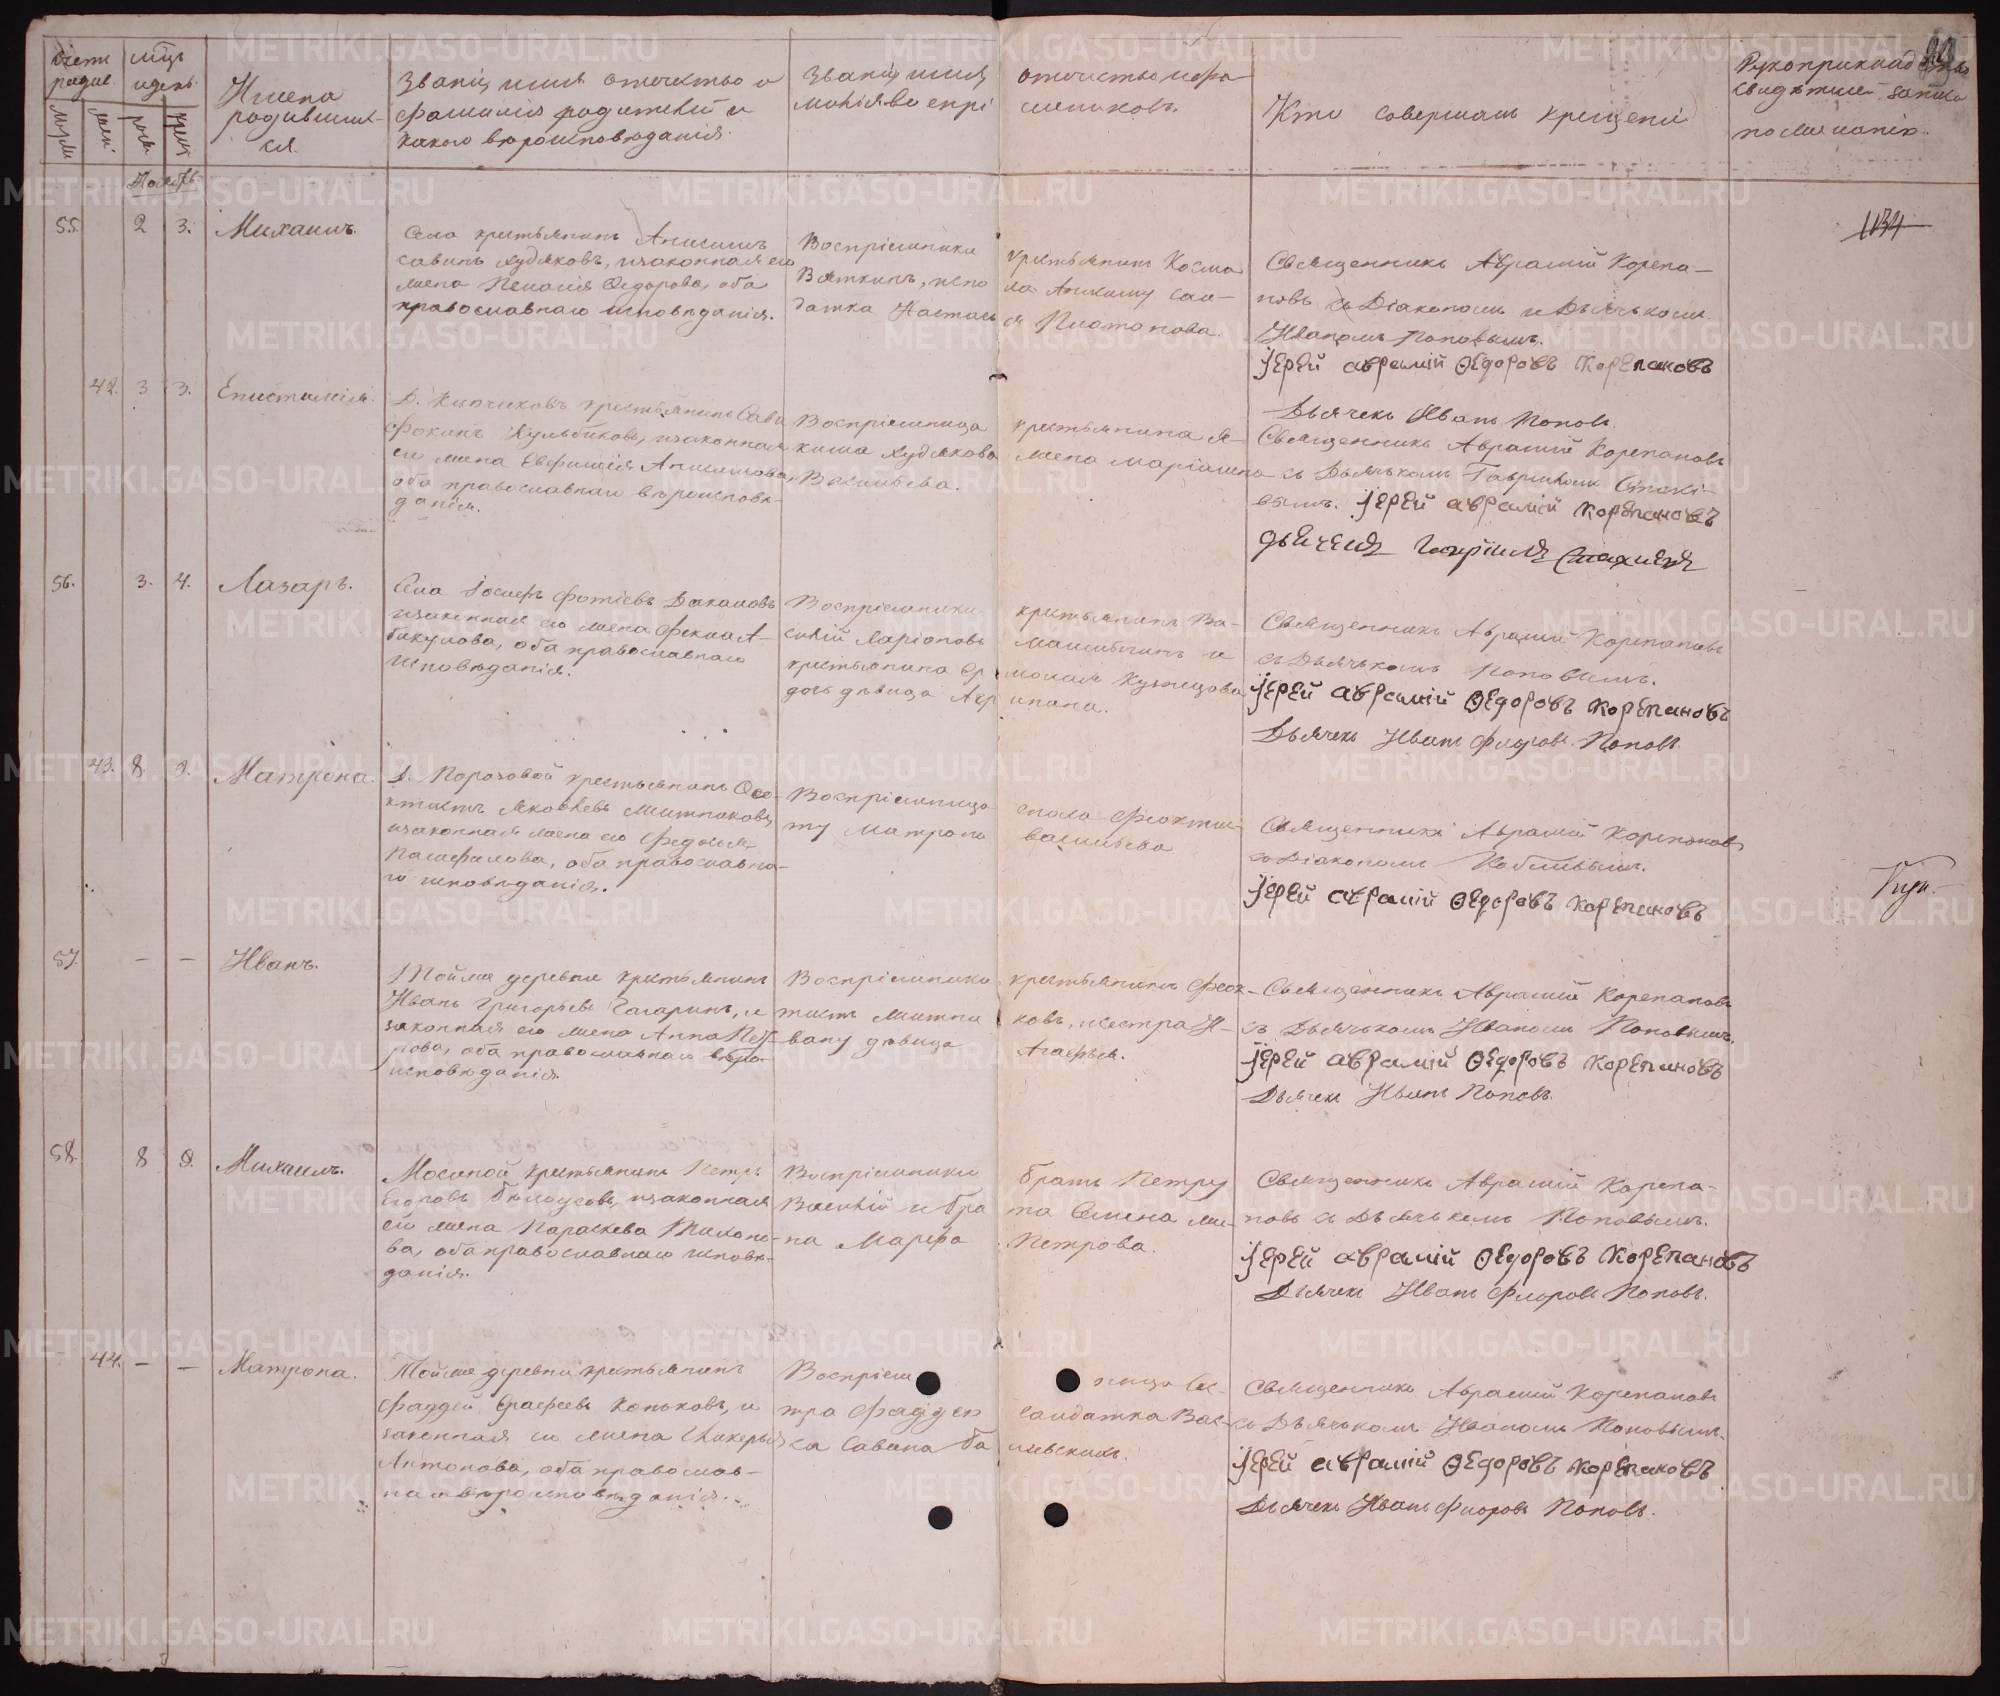 Счетъ родив.
мѣсяцъ и день.
Имена родившихся.
Званіе, имя отечество и фамилія родителей и какого вѣроисповѣданія.
Званіе, имя, отечество и фамилія воспріемниковъ.
Кто совершалъ крещеніе
Рукоприкладство свидѣтелей записи по желанію.
Ноябрь
55. 2 3. Михаилъ.
Села крестьянинъ Анисимъ
Савинъ Худяковъ, и законная его
жена Пелагія Ѳедорова, оба
православнаго исповѣданія.
Воспріемники крестьянинъ Косма
Вяткинъ, и
датка Настасья Платонова.
Священникъ Аврамій Корепа-
новъ съ Діакономъ и Дьячкомъ
Иваномъ Поповымъ.
Іерей Аврамій Ѳедоровъ Корепановъ
Дьячекъ Иванъ Поповъ.
1134
42. 3 3. Епистимія.
крестьянинъ Сава
Фокинъ законная
его жена Евфимія Анисимова,
оба православнаго вѣроисповѣ-
данія.
Воспріемница крестьянина Я-
кима Худякова жена Маріамна
Васильева.
Священникъ Аврамій Корепановъ
съ Дьячкомъ Гавріиломъ Стахі-
евымъ. Іерей Аврамій Корепановъ
Дьячекъ Гавріилъ Стахіевъ
56. 3. 4. Лазарь.
Села Іосифъ Фотіевъ
и законная его жена Фекла А-
бакумова, оба православнаго
исповѣданія.
Воспріемники крестьянинъ Ва-
силій Ларіоновъ и
крестьянина Ермолая Кузнецова
дочь дѣвица Акулина.
Священникъ Аврамій Корепановъ
съ Дьячкомъ Поповымъ.
Іерей Аврамій Ѳедоровъ Корепановъ
Дьячекъ Иванъ Флоровъ Поповъ.
43. 8. 9. Матрена.
Д. Пороховой крестьянинъ Ѳео-
ктистъ Яковлевъ Митниковъ,
и законная жена его Федосья
Памфилова, оба православна-
го исповѣданія.
Воспріемница
ту Матрона Васильева
Священникъ Аврамій Корепановъ
съ Діакономъ
Іерей Аврамій Ѳедоровъ Корепановъ
57. — — Иванъ.
Той же деревни крестьянинъ
Иванъ Григорьевъ Гагаринъ, и
законная его жена Анна Пет-
рова, оба православнаго вѣро-
исповѣданія.
Воспріемники крестьянинъ Феок-
тистъ Митниковъ, и сестра И-
вану дѣвица Агафья.
Священникъ Аврамій Корепановъ
съ Дьячкомъ Иваномъ Поповымъ.
Іерей Аврамій Ѳедоровъ Корепановъ
Дьячекъ Иванъ Поповъ.
58. 8 9. Михаилъ.
Мосиной крестьянинъ Петръ
Егоровъ Бѣлоусовъ, и законная
его жена Параскева Тихоно-
ва, оба православнаго исповѣ-
данія.
Воспріемники братъ Петру
Василій и брата Семена же-
на Марѳа Петрова.
Священникъ Аврамій Корепа-
новъ съ Дьячкомъ Поповымъ.
Іерей Аврамій Ѳедоровъ Корепановъ
Дьячекъ Иванъ Флоровъ Поповъ.
44. — — Матрона.
Той же деревни крестьянинъ
Фаддей Ерофеевъ Коньковъ, и
законная его жена Гликерья
Антонова, оба православ-
наго вѣроисповѣданія.
Воспріемница сес-
тра Фаддея солдатка Вас-
са Савина
Священникъ Аврамій Корепановъ
съ Дьячкомъ Иваномъ Поповымъ.
Іерей Аврамій Ѳедоровъ Корепановъ
Дьячекъ Иванъ Флоровъ Поповъ.
METRIKI.GASO-URAL.RU